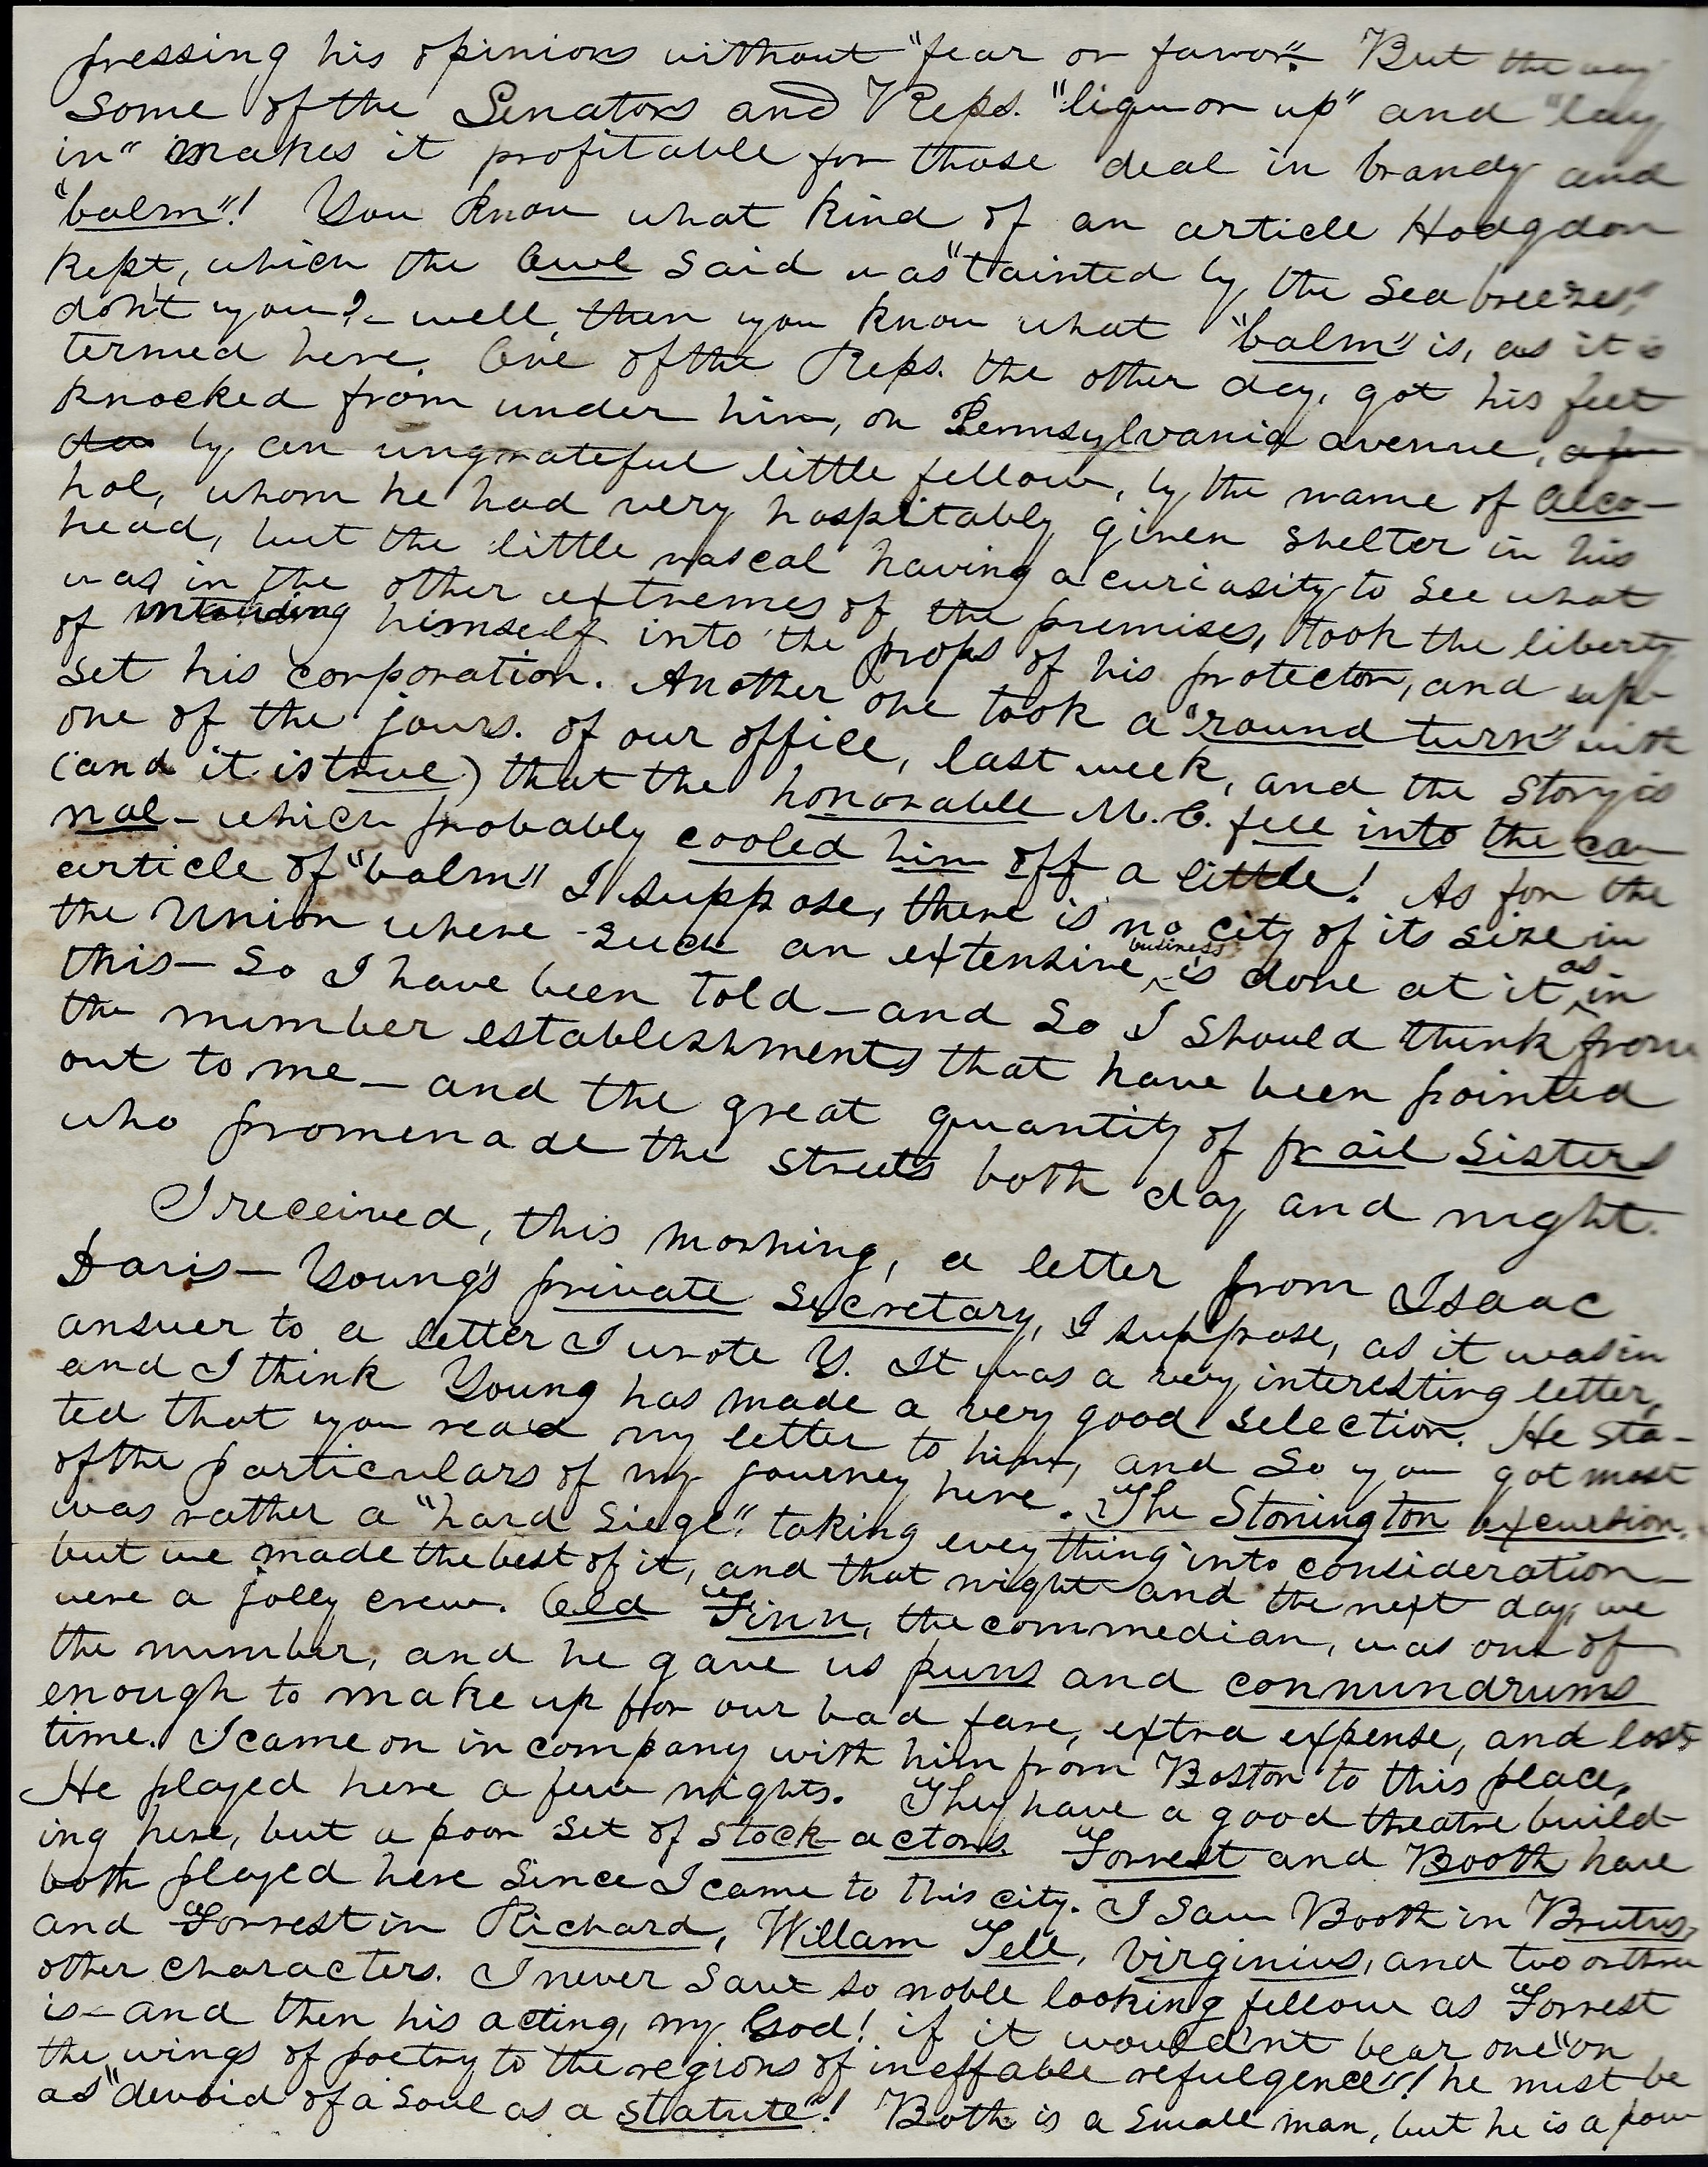 pressing his opinions without "fear or favor." But the way
some of the Senators and Reps. "liquor up" and "lay
in" makes it profitable for those deal in brandy and
"balm"! You know what kind of an article Hodgdon
kept, which the Owl said was "tainted by the sea breezes,"
don't you?—well then you know what "balm" is, as it is
termed here. One of the Reps. the other day, got his feet
knocked from under him, on Pennsylvania avenue,
by an ungrateful little fellow, by the name of Alco-
hol, whom he had very hospitably given shelter in his
head, but the little rascal having a curiosity to see what
was in the other extremes of the premises, took the liberty
of intruding himself into the props of his protector, and up-
set his corporation. Another one took a "round turn" with
one of the jours. of our office, last week, and the story is
(and it is true) that the honorable M. C. fell into the ca-
nal—which probably cooled him off a little! As for the
article of "balm" I suppose, there is no city of its size in
the Union where such an extensive business is done at it as in
this—so I have been told—and so I should think from
the number establishments that have been pointed
out to me—and the great quantity of frail sisters
who promenade the streets both day and night.
I received, this morning, a letter from Isaac
Davis—Young's private secretary, I suppose, as it was in
answer to a letter I wrote Y. It was a very interesting letter,
and I think Young has made a very good selection. He sta-
ted that you read my letter to him, and so you got most
of the particulars of my journey here. The Stonington excursion,
was rather a "hard siege," taking everything into consideration—
but we made the best of it, and that night and the next day, we
were a jolly crew. Old Finn, the commedian, was one of
the number, and he gave us puns and connundrums
enough to make up for our bad fare, extra expense, and lost
time. I came on in company with him from Boston to this place.
He played here a few nights. They have a good theatre build-
ing here, but a poor set of stock actors. Forrest and Booth have
both played here since I came to this city. I saw Booth in Brutus,
and Forrest in Richard, Willam Tell, Virginius, and two or three
other characters. I never saw so noble looking fellow as Forrest
is—and then his acting, my God! if it wouldn't bear one "on
the wings of poetry to the regions of ineffable refulgence"! he must be
as "devoid of a soul as a statute"! Both is a small man, but he is a pow